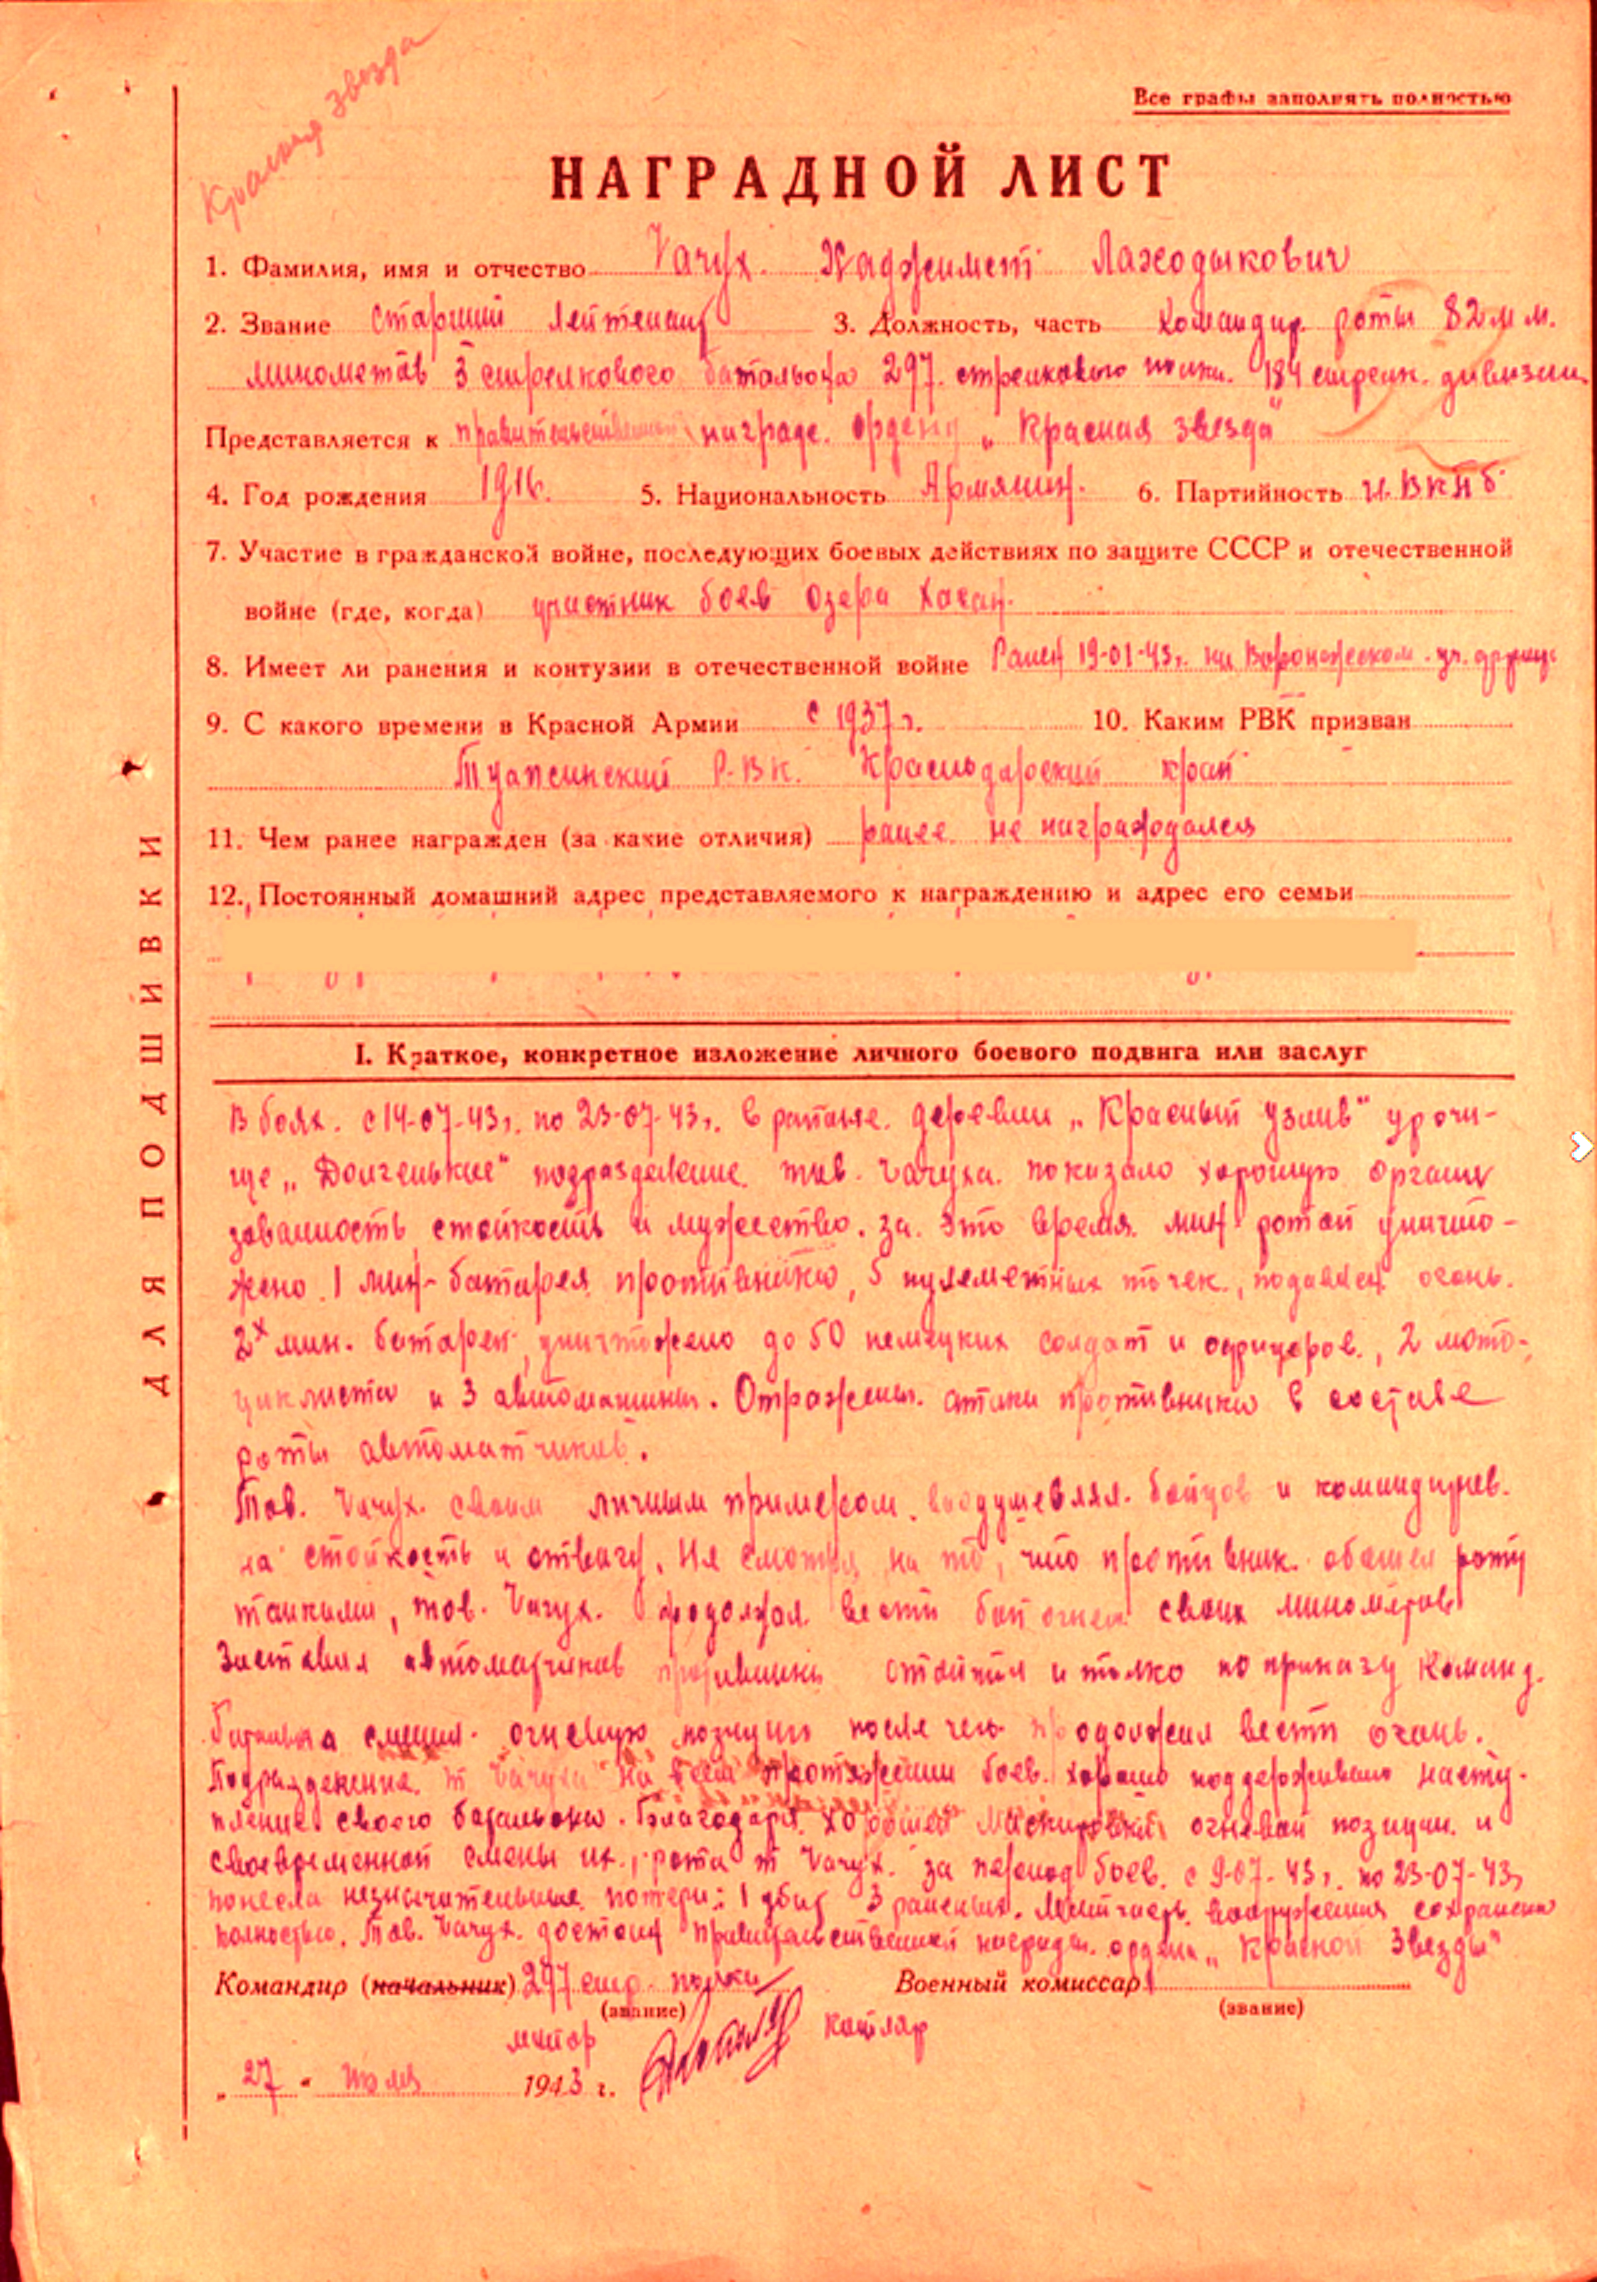 Красная Звезда
Все графы заполнять полностью
НАГРАДНОЙ ЛИСТ
1. Фамилия, имя и отчество Чачух Хаджимет Лаходыкович
2. Звание старший лейтенант 3. Должность, часть командир роты 82 м м.
минометов 3 стрелкового батальона 297. стрелкового полка. 184 стрелк. дивизии
Представляется к правительственной награде. ордену „Красная звезда"
4. Год рождения 1916. 5. Национальность Армянин. 6. Партийность ч. ВКПб
7. Участие в гражданской войне, последующих боевых действиях по защите СССР и отечественной
войне (где, когда) участник боев озера Хасан.
8. Имеет ли ранения и контузии в отечественной войне Ранен 19-01-43г. на Воронежском
9. С какого времени в Красной Армии с 1937 г. 10. Каким РВК призван
Туапсинский Р.В.К. Краснодарский край
11. Чем ранее награжден (за какие отличия) ранее не награждался
12. Постоянный домашний адрес представляемого к награждению и адрес его семьи
I. Краткое, конкретное изложение личного боевого подвига или заслуг
В боях. с 14-07-43г. по 23-07-43г. в районе. деревни „Красный узлив" урочи-
ще „Долгенькие" подразделение тов. Чачуха. показало хорошую органи
зованность стойкость и мужество. за это время мин ротой уничто-
жено 1 мин-батарея противника, 5 пулеметных точек, подавлен огонь.
2х мин. батарей, уничтожено до 50 немецких солдат и офицеров., 2 мото-
циклиста и 3 автомашины. Отражены. атаки противника в составе
роты автоматчиков.
Тов. Чачух. своим личным примером. воодушевлял. бойцов и командиров.
на стойкость и отвагу. Не смотря на то, что противник. обошел роту
танками, тов. Чачух. продолжал вести бой огнем своих минометов
Заставил автоматчиков противника и только по приказу команд.
Батальона сменил. огневую позицию после чего продолжил вести огонь.
Подразделение т Чачуха на всем протяжении боев. хорошо поддерживало насту-
пление своего батальона. Благодаря хорошей маскировки огневой позиции. и
своевременной смены их., рота т Чачух. за период боев. с 9-07-43г. по 23-07-43г
понесла незначительные потери: 1 убит 3 раненых. Матчасть вооружения сохранена
полностью. Тов. Чачух. достоин правительственной награды. ордена „Красной Звезды"
Командир (начальник) 297 стр. полка Военный комиссар
(звание) (звание)
майор Котляр
„27" июля 1943 г.
ДЛЯ ПОДШИВКИ